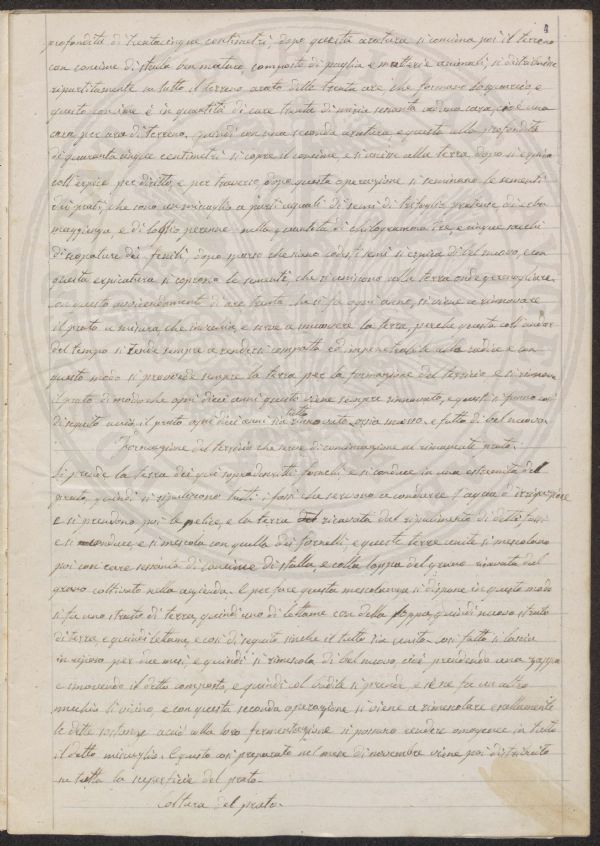 profondità di trentacinque centimetri, dopo questa aratura si concima poi il terreno
con concime di stalla ben maturo composto di paglia e materie animali, si distribuisce
ripartitamente in tutto il terreno arato delle trenta are che formano e
questo concime è in quantità di care trenta di miria sessanta caduna cara, cioè una
cara per ara di terreno, quindi con una seconda aratura e questa alla profondità
di quaranta cinque centimetri si copre il concime, e si unisce alla terra, dopo si erpica
coll'erpice per diritto, e per traverso, dopo questa operazione si seminano le sementi
dei prati, che sono un miscuglio a parti uguali di semi di trifoglio pratense di erba
maggienga e di loglio perenne nella quantità di chilogrammi tre, e cinque sacchi
di dei fenili, dopo sparso che siano codesti semi si erpica di bel nuovo, e con
questa erpicatura si coprono le sementi, che si uniscono colla terra onde germogliare.
Con questo avvicendamento di are trenta che si fa ogni anno, si viene a rinnovare
il prato a misura che invecchia, e serve a smuovere la terra, perchè questa coll'andar
del tempo si rende sempre a rendersi compatta ed impenetrabile alle radici e con
questo modo si provvede sempre la terra per la formazione del terriccio e si rinnova
il prato di modo che ogni dieci anni questo viene sempre rinnovato, e questo si fanno così
di seguito acciò il prato ogni dieci anni sia tutto rinnovato ossia messo e fatto di bel nuovo.
Formazione del terriccio che serve di concimazione al rimanente prato.
Si prende la terra dei qui sopradescritti fornelli e si conduce in una estremità del
prato, quindi si ripuliscono tutti i fossi che servono a condurre l'acqua d'irrigazione
e si prendono poi le pelice, e la terra ricavata del ripulimento di detti fossi
e si conduce, e si mescola con quella dei fornelli, e queste terre unite si mescolano
poi con care sessanta di concime di stalla, e colla loppa del grano ricavata del
grano coltivato nella azienda. E per fare questa mescolanza si dispone in questo modo
si fa uno strato di terra, quindi uno di lettame con della loppa, quindi nuovo strato
di terra e quindi letame, e così di seguito sinchè il tutto sia unito. Così fatto si lascia
in riposo per due mesi, e quindi si rimescola di bel nuovo, cioè prendendo una zappa
e smovendo il detto composto, e quindi col badile si prende, e se ne fa un altro
mucchio li vicino, e con questa seconda operazione si viene a rimescolare esattamente
le dette sostanze acciò alla loro fermentazione si possano rendere omogenee in tutto
il detto miscuglio. E questo così preparato nel mese di novembre viene poi distribuito
su tutta la superficie del prato.
Coltura del prato.